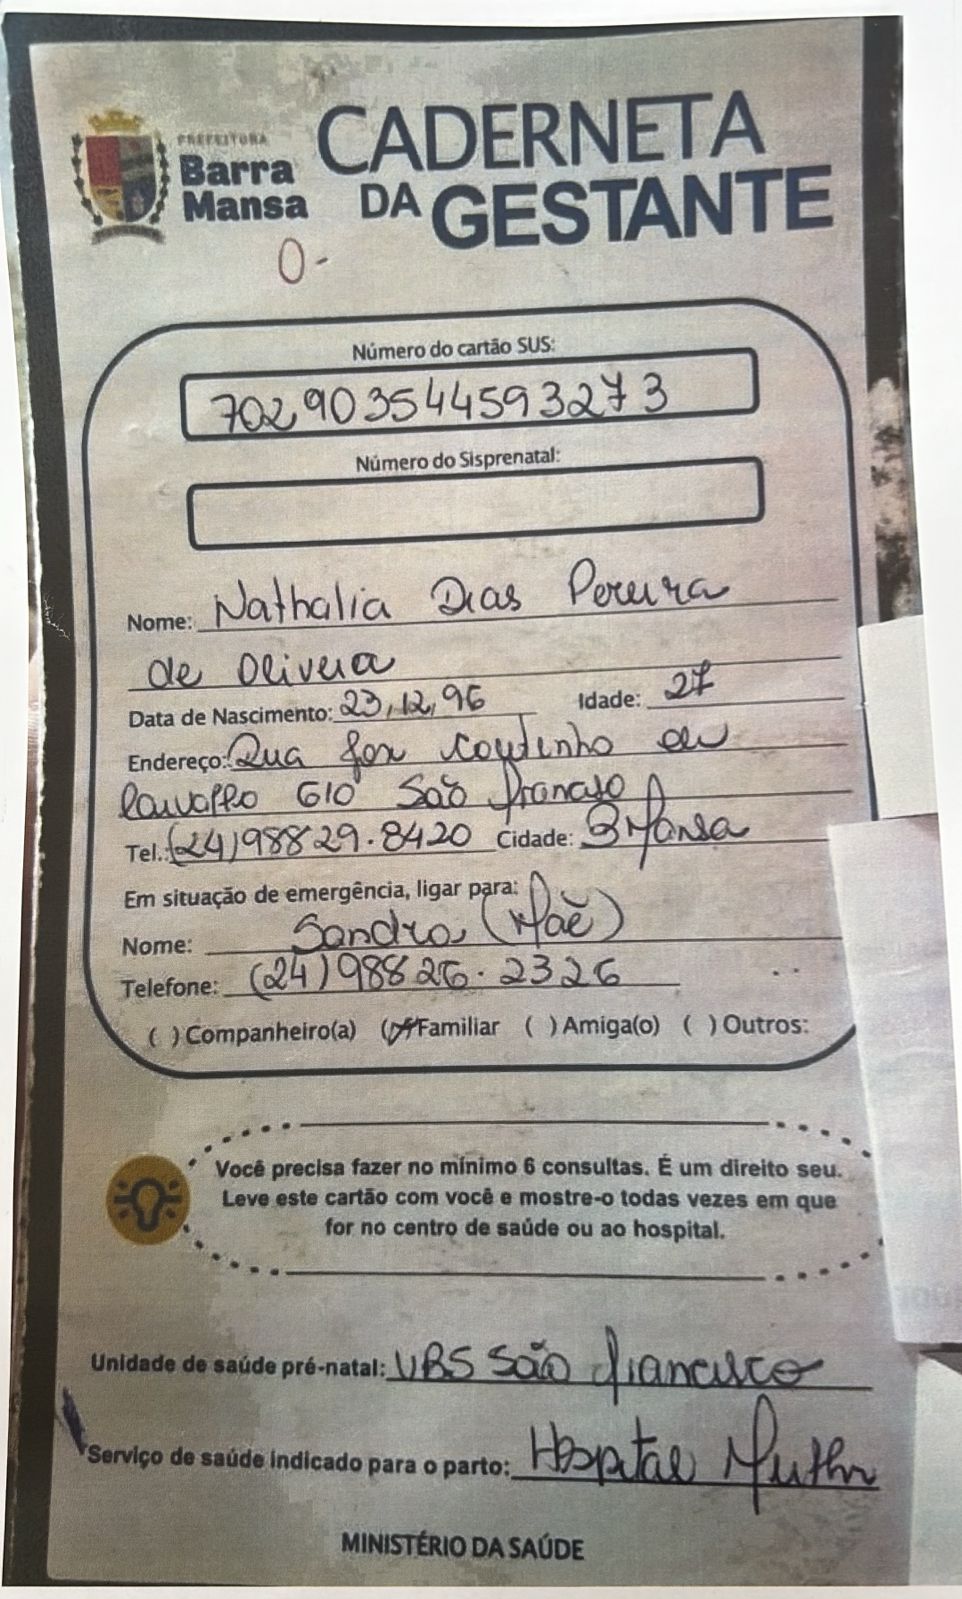 PREFEITURA
Barra
Mansa
CADERNETA
DA GESTANTE
O-
Número do cartão SUS:
702903544593273
Número do Sisprenatal:
Nome: Nathalia Dias Pereira
de Oliveira
Data de Nascimento: 23,12,96 Idade: 27
Endereço: Rua Coutinho de
Carvalho 610 São Francisco
Tel.: (24)98829.8420 Cidade: BMansa
Em situação de emergência, ligar para:
Nome: Sandra (Mãe)
Telefone: (24)98826.2326
( ) Companheiro(a) (X) Familiar ( ) Amiga(o) ( ) Outros:
Você precisa fazer no mínimo 6 consultas. É um direito seu.
Leve este cartão com você e mostre-o todas vezes em que
for no centro de saúde ou ao hospital.
Unidade de saúde pré-natal: UBS São Francisco
Serviço de saúde indicado para o parto: Hospital
MINISTÉRIO DA SAÚDE